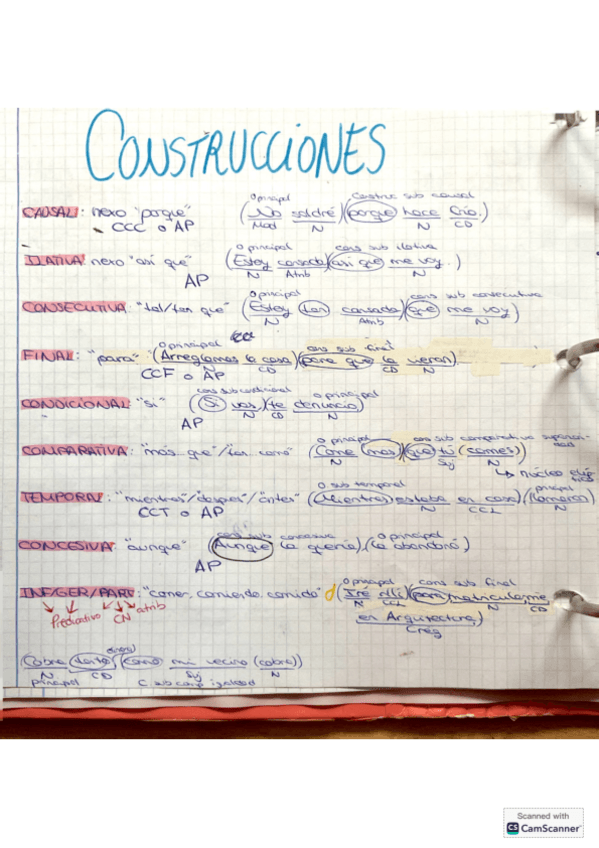 CONSTRUCCIONES
O principal Constru sub causal
CAUSAL: nexo "porque" (No saldré)(porque hace frío.)
CCC o AP Mod N N CD
O principal cons sub ilativa
ILATIVA nexo "así que" (Estoy cansada)(así que me voy.)
AP N Atrib N
O principal cons sub consecutiva
CONSECUTIVA "tal/tan que" (Estoy tan cansada)(que me voy)
N Atrib N
O principal cons sub final
FINAL: "para" (Arreglamos la casa)(para que la vieran)
CCF o AP N CD CD N
cons sub condicional O principal
CONDICIONAL "si" (Si vas,)(te denuncio)
AP N CD N
O principal cons sub comparativa superioridad
COMPARATIVA: "más que"/"tan como" (Come más)(que tú (comes))
N Suj N
↳ núcleo elíptico
O sub temporal principal
TEMPORAL: "mientras"/"después"/"antes" (Mientras estaba en casa)(llamaron)
CCT o AP N CCL N
sub concesiva O principal
CONCESIVA: "aunque" (Aunque la quería),(la abandonó)
AP
O principal cons sub final
INF/GER/PART: "comer, comiendo, comido" (Iré allí)(para matricularme
N CCL N CD
Predicativo CN atrib
en Arquitectura)
CReg
(Cobra tanto)(como mi vecino (cobra))
N CD Suj N
principal C sub comp igualdad
Scanned with
CS CamScanner